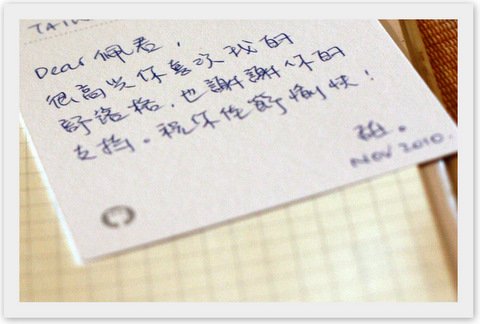 Dear 佩君，
很高兴你喜欢我的
部落格，也謝謝你的
支持。祝你佳節愉快！
NOV 2010.